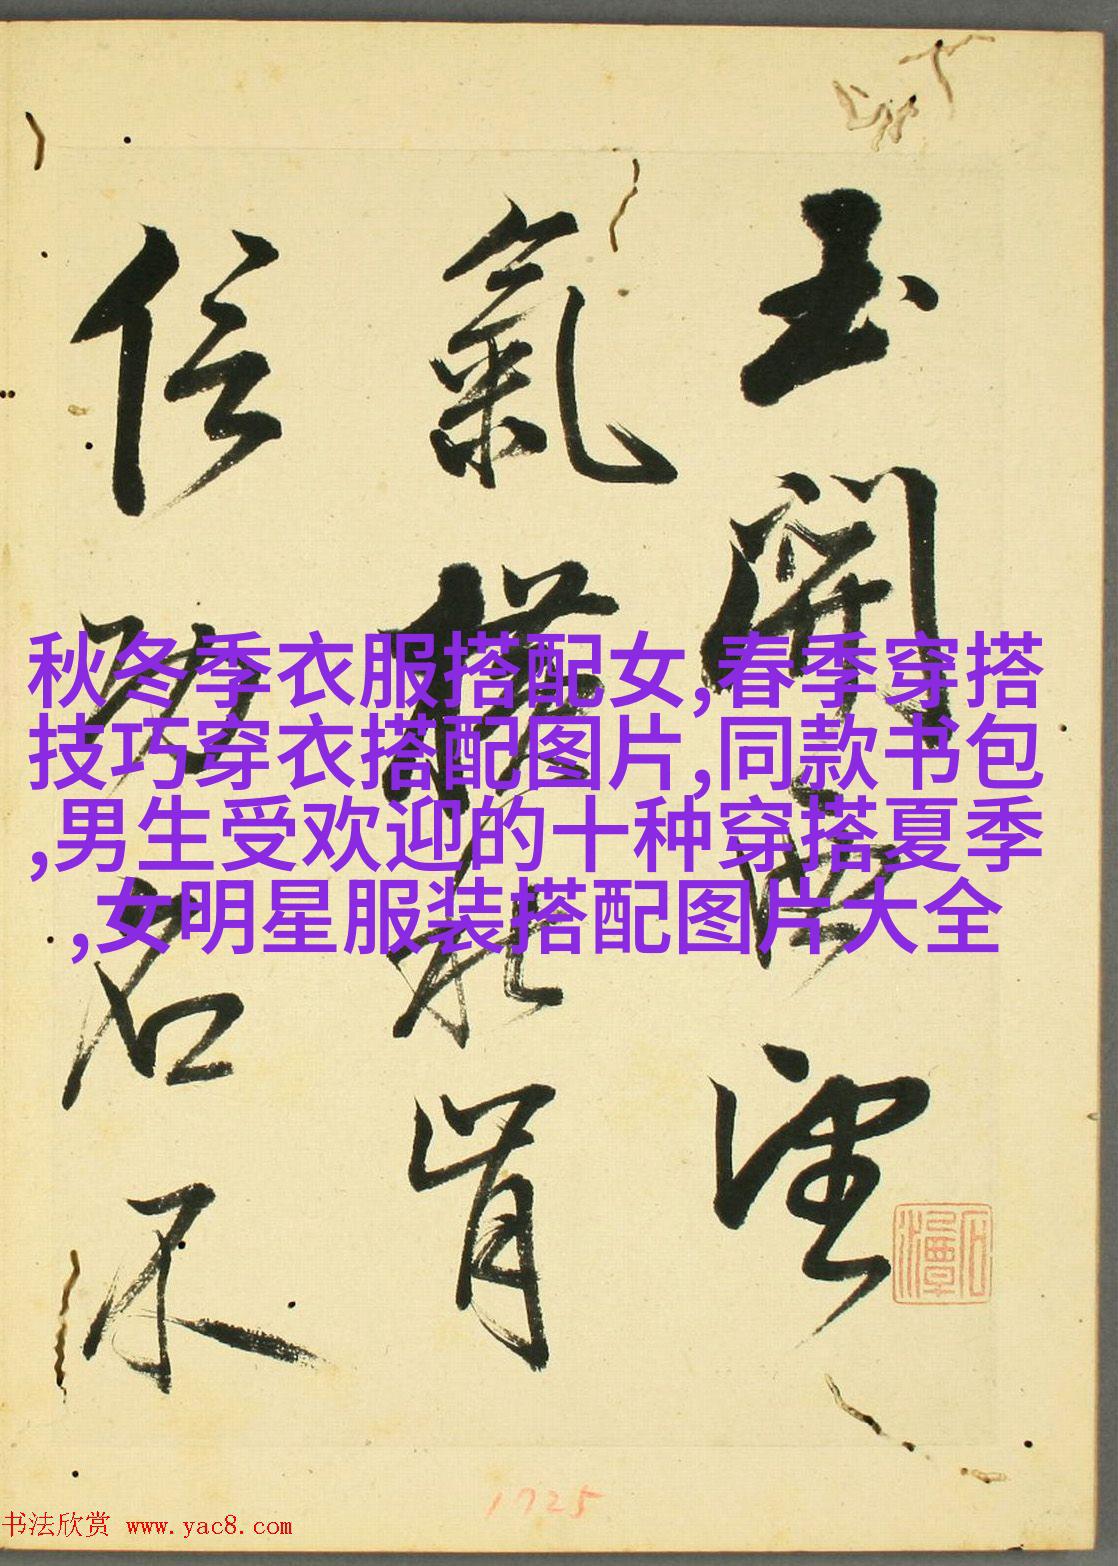 玉開海望
氣橫秋肯
信功名不
秋冬季衣服搭配女,春季穿搭
技巧穿衣搭配图片,同款书包
,男生受欢迎的十种穿搭夏季
,女明星服装搭配图片大全
1725
书法欣赏 www.yac8.com